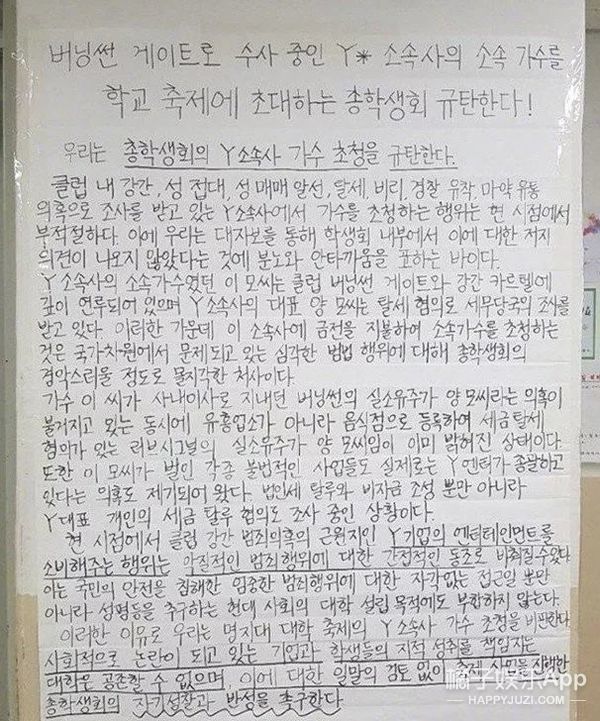 버닝썬 게이트로 수사 중인 Y* 소속사의 소속 가수를
학교 축제에 초대하는 총학생회 규탄한다!
우리는 총학생회의 Y소속사 가수 초청을 규탄한다.
클럽 내 강간, 성 접대, 성매매 알선, 탈세, 비리, 경찰 유착, 마약 유통
의혹으로 조사를 받고 있는 Y소속사에서 가수를 초청하는 행위는 현 시점에서
부적절하다. 이에 우리는 대자보를 통해 학생회 내부에서 이에 대한 저지
의견이 나오지 않았다는 것에 분노와 안타까움을 표하는 바이다.
Y소속사의 소속가수였던 이 모씨는 클럽 버닝썬 게이트와 강간 카르텔에
깊이 연루되어 있으며 Y소속사의 대표 양 모씨는 탈세 혐의로 세무당국의 조사를
받고 있다. 이러한 가운데 이 소속사에 금전을 지불하여 소속가수를 초청하는
것은 국가차원에서 문제되고 있는 심각한 범법 행위에 대해 총학생회의
경악스러울 정도로 몰지각한 처사이다.
가수 이 씨가 사내이사로 지내던 버닝썬의 실소유주가 양 모씨라는 의혹이
불거지고 있는 동시에 유흥업소가 아니라 음식점으로 등록하여 세금 탈세
혐의가 있는 러브시그널의 실소유주가 양 모씨임이 이미 밝혀진 상태이다.
또한 이 모씨가 벌인 각종 불법적인 사업들도 실제로는 Y엔터가 총괄하고
있다는 의혹도 제기되어 왔다. 법인세 탈루와 비자금 조성 뿐만 아니라
Y대표 개인의 세금 탈루 혐의도 조사 중인 상황이다.
현 시점에서 클럽 강간 범죄의혹의 근원지인 Y기업의 엔터테인먼트를
소비해주는 행위는 악질적인 범죄행위에 대한 간접적인 동조로 비춰질 수 있다
이는 국민의 안전을 침해한 엄중한 범죄행위에 대한 자각없는 접근일 뿐만
아니라 성평등을 추구하는 현대 사회의 대학 설립 목적에도 부합하지 않는다.
이러한 이유로 우리는 명지대 대학 축제의 Y소속사 가수 초청을 비판한다
사회적으로 논란이 되고 있는 기업과 학생들의 지적 성취를 책임지는
대학은 공존할 수 없으며, 이에 대한 일말의 검토 없이 축제
총학생회의 자기성찰과 반성을 촉구한다
橘子娱乐App
HAPPYJUZI.COM